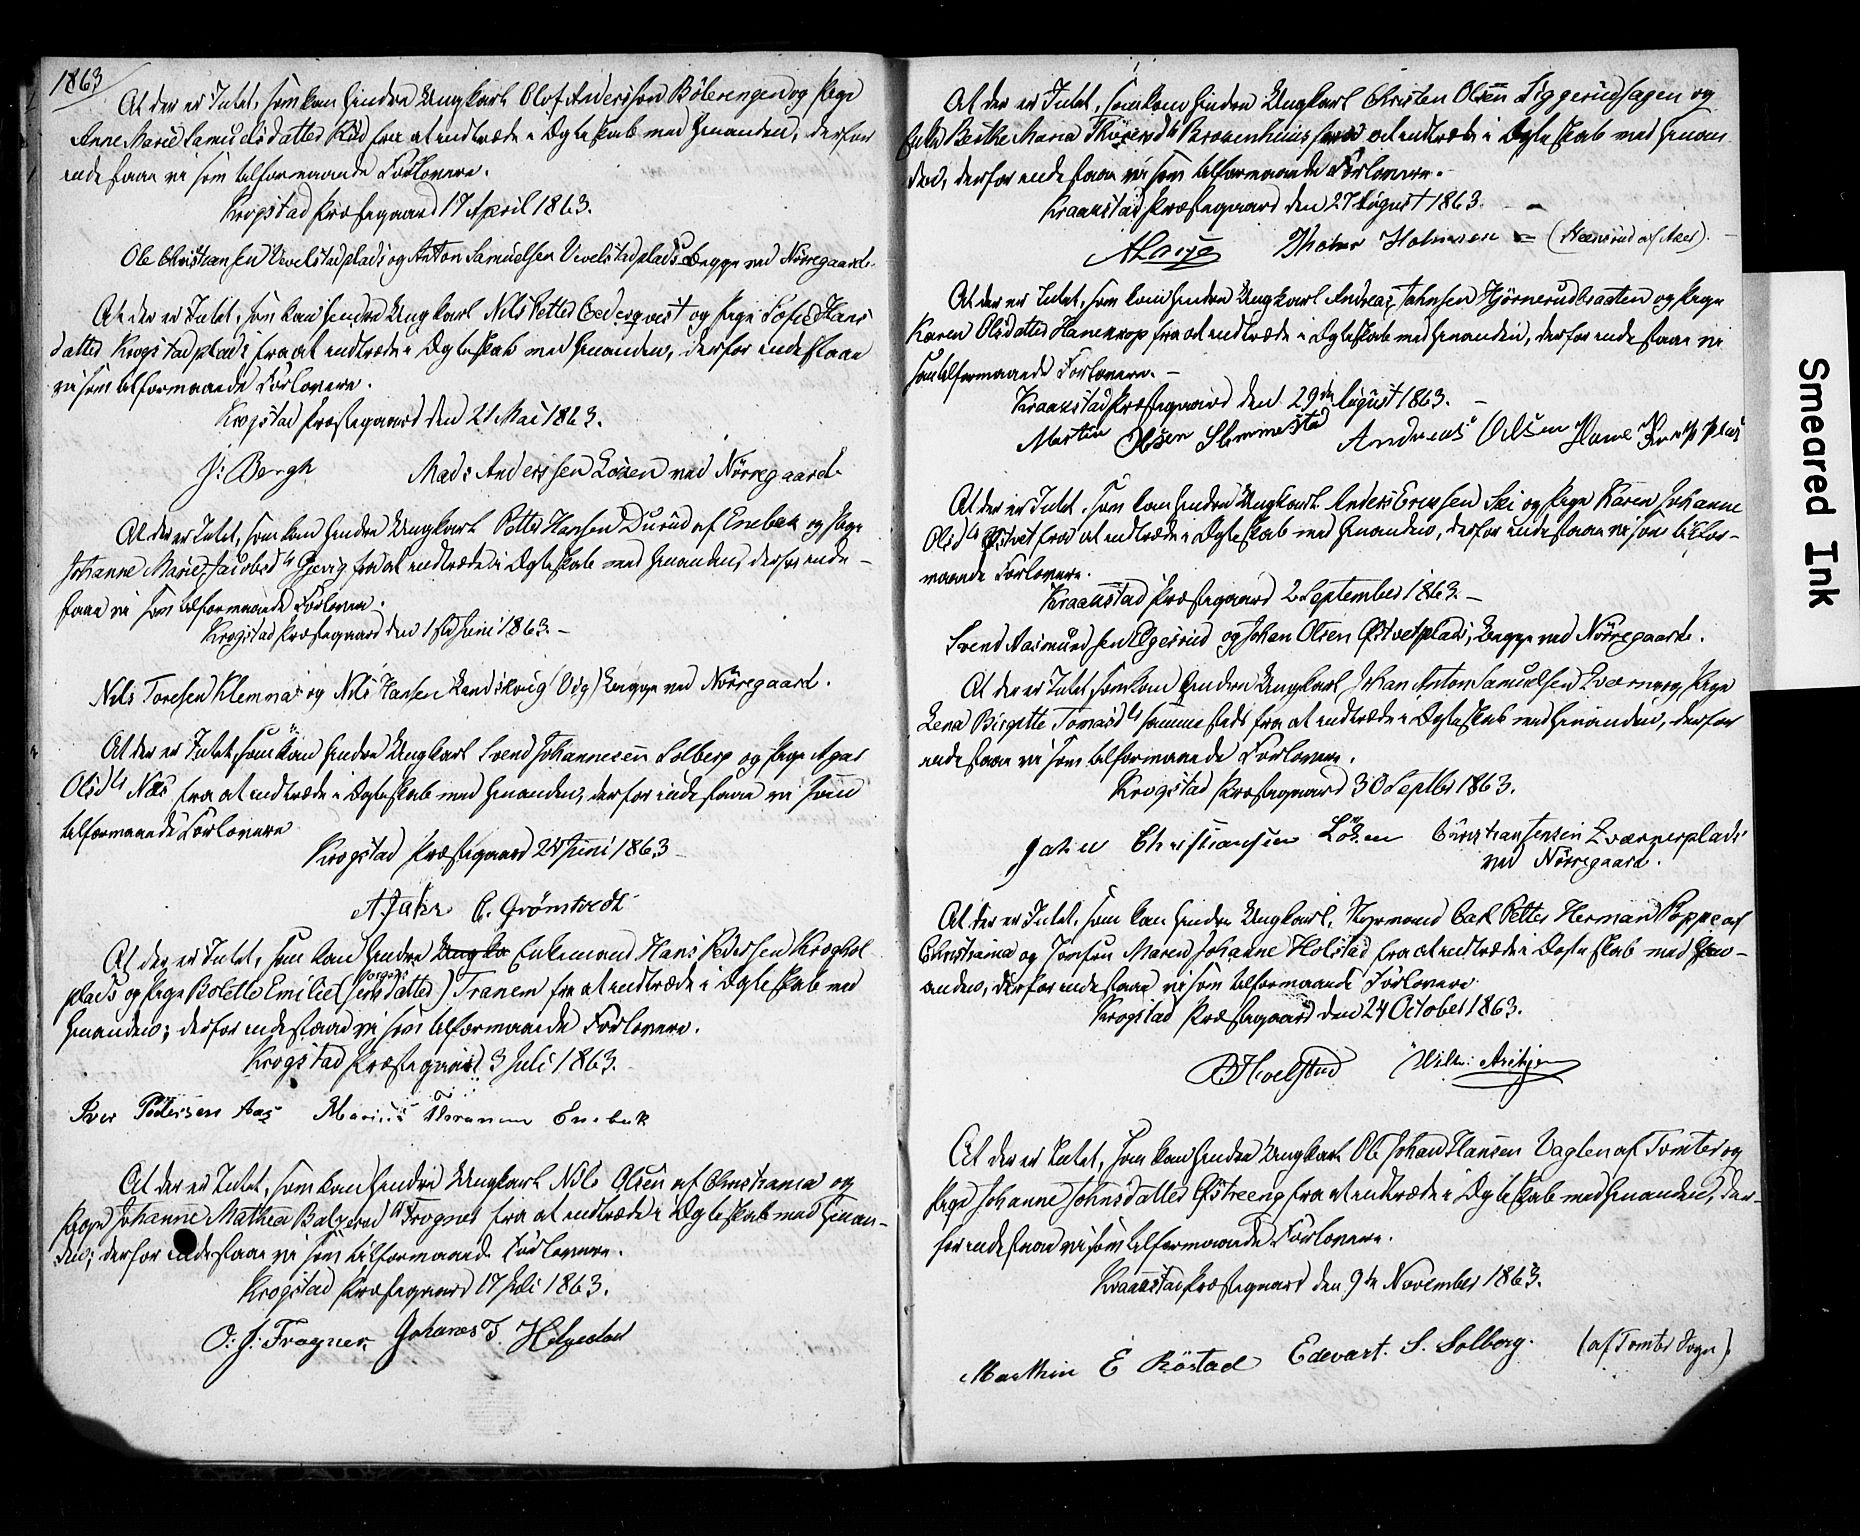 1863
At der er Intet, som kan hindre Ungkarl Olof Andersson Bölerengen og Pige
Anne Marie Samuelsdatter Rud fra at indtræde i Ægteskab med hinanden, derfor
indestaae vi som velformaaende Forlovere.
Krogstad Præstegaard 17 April 1863.
Ole Christiansen Vevelstadplads og Anton Samuelsen Vevelstadplads begge ved Nörregaard.
At der er Intet, som kan hindre Ungkarl Nils Petter Cederqvist og Pige Sofie Hans
datter Krogstadplads fra at indtræde i Ægteskab med hinanden, derfor indestaae
vi som velformaaende Forlovere.
Krogstad Præstegaard den 21 Mai 1863.
J: Bergh Mads Anderssen Losen ved Nörregaard.
At der er Intet, som kan hindre Ungkarl Petter Hansen Durud af Enebak og Pige
Johanne Marie Jacobsd. Gjevig fra at indtræde i Ægteskab med hinanden, derfor inde-
staae vi som velformaaende Forlovere.
Krogstad Præstegaard den 1ste Juni 1863.-
Nils Toresen Klemmas og Nils Hansen (Vig) begge ved Nörregaard.
At der er Intet, som kan hindre Ungkarl Svend Johannesen Solberg og Pige Agas
Olsd. Næs fra at indtræde i Ægteskab med hinanden, derfor indestaae vi som
velformaaende Forlovere
Krogstad Præstegaard 24 Juni 1863
A. Jahr C. Grönstvedt
At der er Intet, som kan hindre Ungka Enkemand Hans Pedersen Kroghol
plads og Pige Bolette Emilie (datter) Tranem fra at indtræde i Ægteskab med
hinanden; derfor indestaae vi som velformaaende Forlovere.
Krogstad Præstegaard 3 Juli 1863.
Iver Pedersen Aas Marius Thranum Enebak
At der er Intet, som kan hindre Ungkarl Nils Olsen af Christiania og
Pige Johanne Mathea Balzersd. Frogner fra at indtræde i Ægteskab med hinan-
den; derfor indestaae vi som velformaaende Forlovere.
Krogstad Præstegaard 17 Juli 1863.
O: J: Frogner. Johanes T. Helgestad
At der er Intet, som kan hindre Ungkarl Christen Olsen Siggerudsagen og
Enke Berthe Maria Thoresd. Brovenhuus fra at indtræde i Ægteskab med hinan
den, derfor indestaae vi som velformaaende Forlovere.
Kraakstad Præstegaard den 27 August 1863.
Thomas Halvorsen
At der er Intet, som kan hindre Ungkarl Andreas Johnsen Hjörnerudbraaten og Pige
Karen Olsdatter Hanekrop fra at indtræde i Ægteskab med hinanden, derfor indestaae vi
som velformaaende Forlovere.-
Kraakstad Præstegaard den 29de August 1863.
Martin Olsen Slemmestad Andreas Olsen Hane Krop plas
At der er Intet, som kan hindre Ungkarl Anders Ericksen Ski og Pige Karen Johanne
Olsd. Østvet fra at indtræde i Ægteskab med hinanden, derfor indestaae vi som velfor-
maaende Forlovere.
Kraakstad Præstegaard 2 September 1863.-
Svend Aasmundsen Elgesrud og Johan Olsen Østvetplads, begge ved Nörregaard.
At der er Intet, som kan hindre Ungkarl Johan Anton Samuelsen Qværner og Pige
Lena Birgitte Tomasd. sammesteds fra at indtræde i Ægteskab med hinanden, derfor
indestaae vi som velformaaende Forlovere.
Krogstad Præstegaard 30 Septbr 1863.
Johan Christiansen Löken Christian Jensen Qværnerplads
ved Nörregaard.
At der er Intet, som kan hindre Ungkarl, Styrmand Carl Petter Herman Poppe af
Christiania og Jomfru Maren Johanne Holstad fra at indtræde i Ægteskab med hin-
anden, derfor indestaae vi som velformaaende Forlovere
Krogstad Præstegaard den 24 October 1863.
At der er Intet, som kan hindre Ungkarl Ole Johan Hansen Vaglen af Tomter og
Pige Johanne Johnsdatter Østreeng fra at indtræde i Ægteskab med hinanden, der-
for indestaae vi som velformaaende Forlovere.
Kraakstad Præstegaard den 9de November 1863.
Marthin E Röstad Edevart. S. Solberg. (af Tomter Sogn)
Smeared Ink